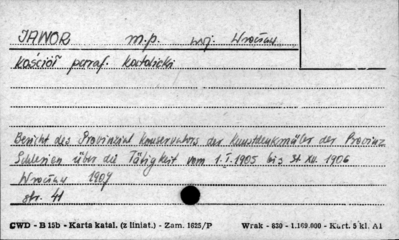 JAWOR m.p. woj. Wrocław
kościół paraf. katolicki
Bericht des Provinzial Konservators der Kunstdenkmäler der Provinz
Schlesien über die Tätigkeit vom 1. I. 1905 bis 31 XII. 1906
Wrocław 1907
str. 41
CWD - B 15b - Karta katal. (z liniat.) - Zam. 1625/P Wrak - 830 - 1.169.000 - Kart. 5 kl. A1